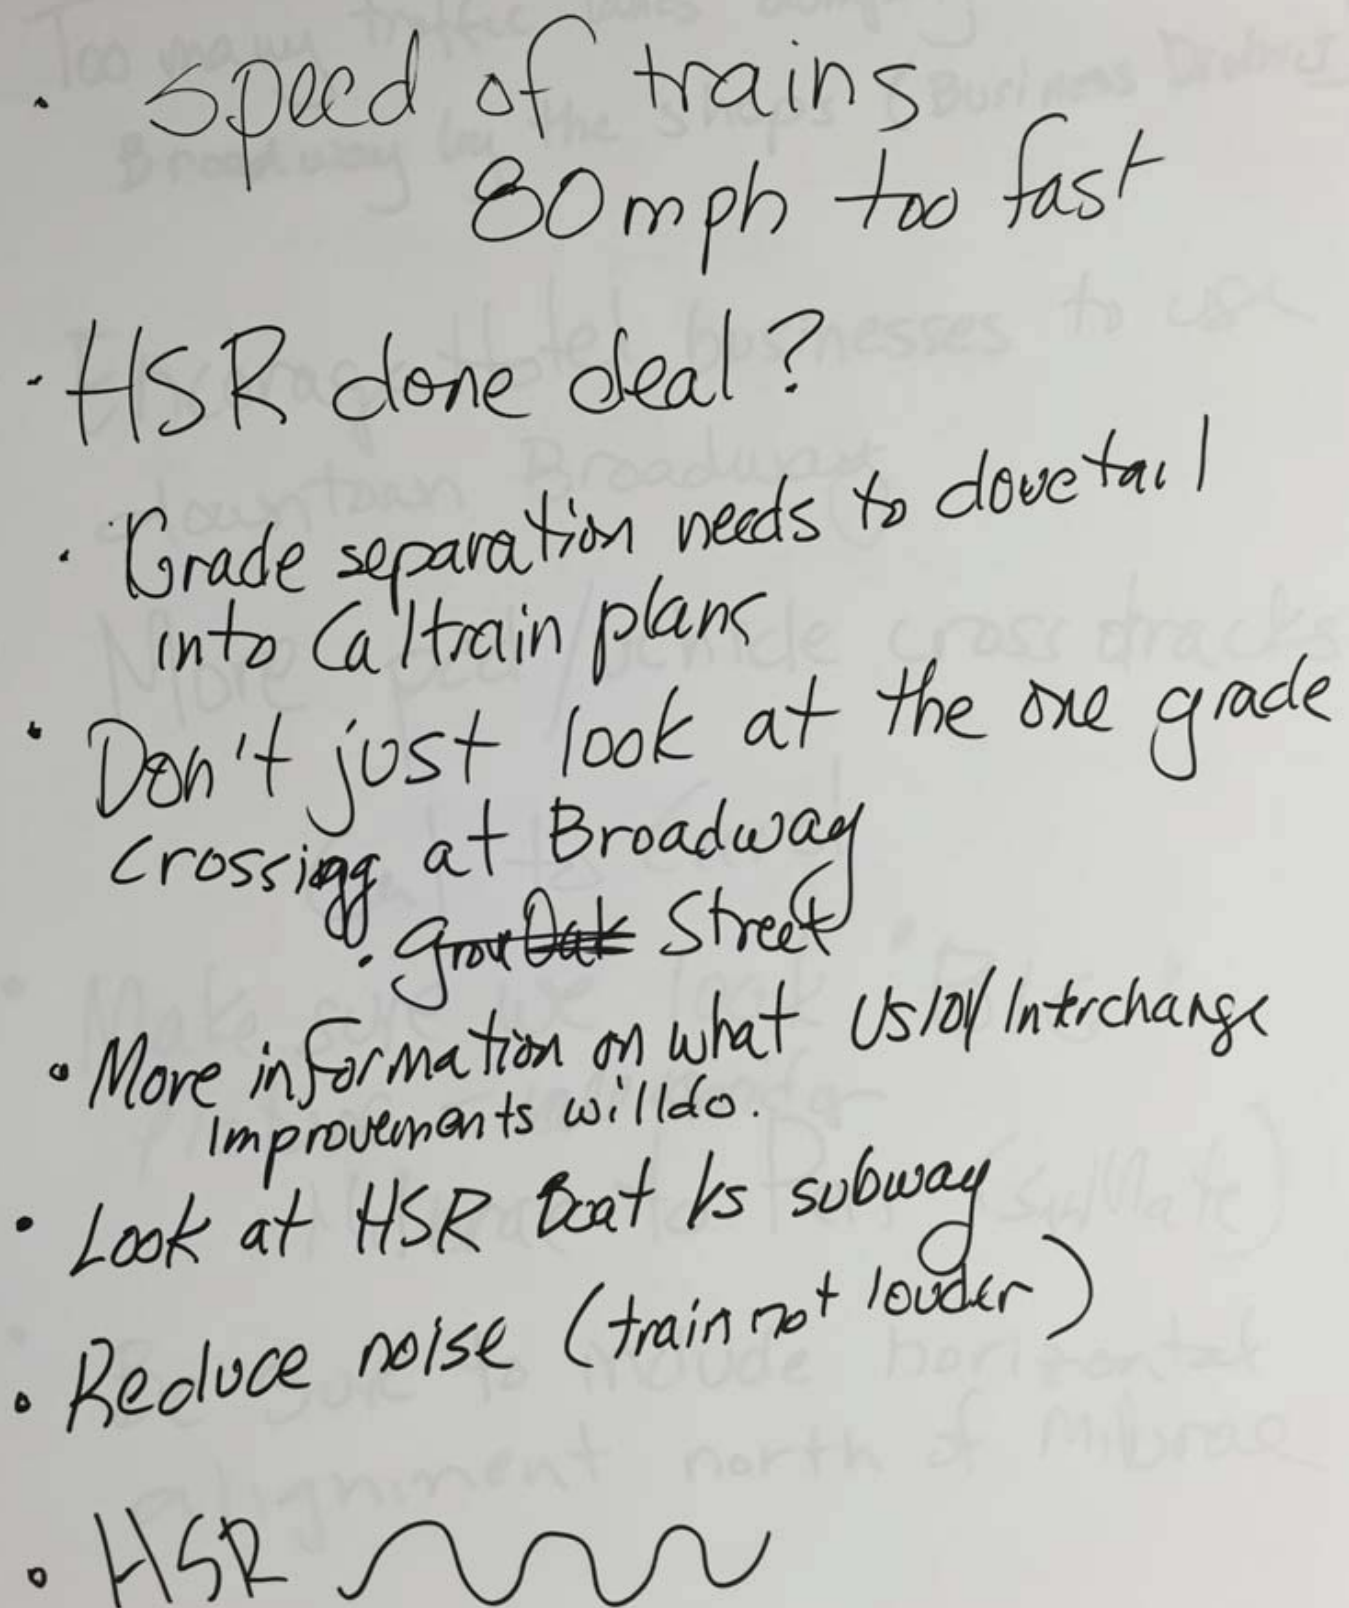 • Speed of trains
80mph too fast
• HSR done deal?
• Grade separation needs to dovetail
into Caltrain plans
• Don't just look at the one grade
crossing at Broadway
• Street
• More information on what US101 Interchange
Improvements will do.
• Look at HSR Boat Vs subway
• Reduce noise (train not louder)
• HSR